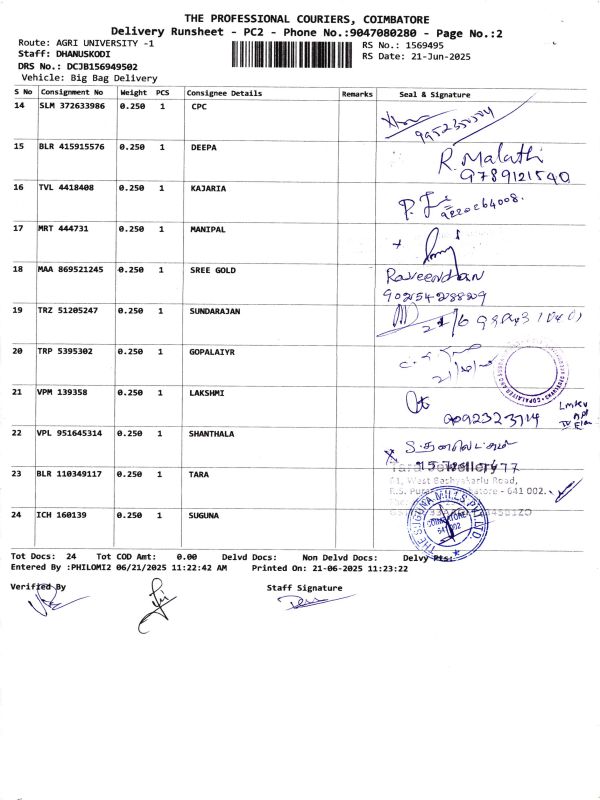 THE PROFESSIONAL COURIERS, COIMBATORE
Delivery Runsheet - PC2 - Phone No.:9047080280 - Page No.:2
Route: AGRI UNIVERSITY -1
RS No.: 1569495
Staff: DHANUSKODI
RS Date: 21-Jun-2025
DRS No.: DCJB156949502
Vehicle: Big Bag Delivery
S No Consignment No Weight PCS Consignee Details Remarks Seal & Signature
14 SLM 372633986 0.250 1 CPC
15 BLR 415915576 0.250 1 DEEPA R. Malathi
9789121540
16 TVL 4418408 0.250 1 KAJARIA
17 MRT 444731 0.250 1 MANIPAL
18 MAA 869521245 0.250 1 SREE GOLD Raveendran
19 TRZ 51205247 0.250 1 SUNDARAJAN 21/6
20 TRP 5395302 0.250 1 GOPALAIYR
21 VPM 139358 0.250 1 LAKSHMI
22 VPL 951645314 0.250 1 SHANTHALA
23 BLR 110349117 0.250 1 TARA Tara Jewellery
West Bashyakarlu Road,
641 002.
24 ICH 160139 0.250 1 SUGUNA THE SUGUNA MILLS PVT LTD
COIMBATORE
641 002
Tot Docs: 24 Tot COD Amt: 0.00 Delvd Docs: Non Delvd Docs: Delvy Pts:
Entered By :PHILOMI2 06/21/2025 11:22:42 AM Printed On: 21-06-2025 11:23:22
Verified By Staff Signature